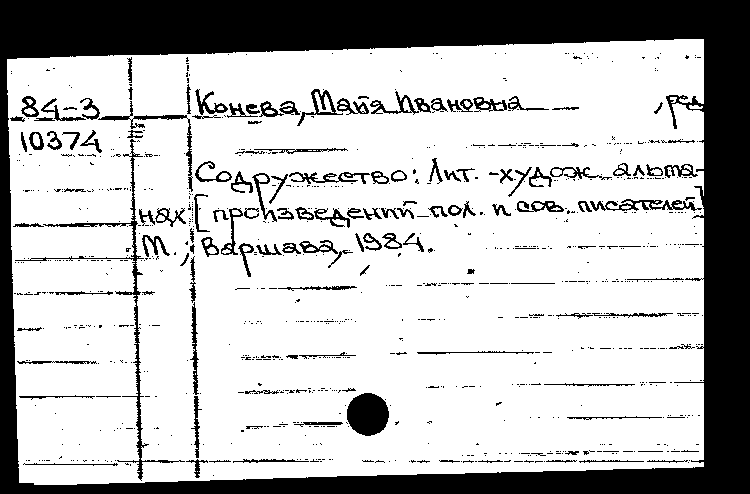 84-3 Конева, Майя Ивановна , ред
10374
Содружество: Лит.-худож. альма-
нах [произведений пол. и сов. писателей]
М.; Варшава, 1984.